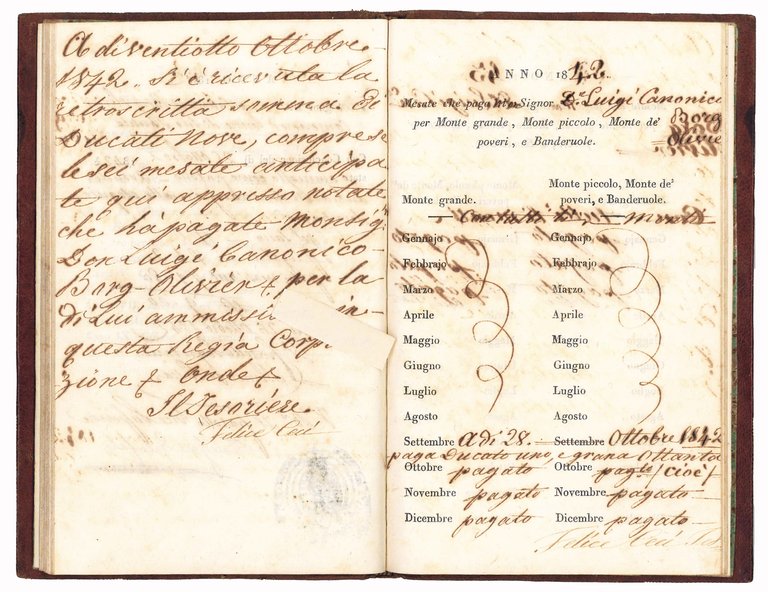 A di ventiotto Ottobre
1842.. Si è ricevuta la
retroscritta somma di
Ducati Nove, comprese
le sei mesate anticipa
te qui appresso notate
che ha pagate Monsigr
Don Luigi Canonico
Borg-Olivier per la
di Lui ammissi in
questa Regia Corp
zione Onde
Il Tesoriere
Felice Ceci
ANNO 1842..
Mesate che paga Signor Dn Luigi Canonico
per Monte grande, Monte piccolo, Monte de' Borg
poveri, e Banderuole. Olivier
Monte grande.
Monte piccolo, Monte de'
poveri, e Banderuole.
Gennajo Gennajo
Febbrajo Febbrajo
Marzo Marzo
Aprile Aprile
Maggio Maggio
Giugno Giugno
Luglio Luglio
Agosto Agosto
Settembre A di 28. Settembre Ottobre 1842
paga Ducato uno, e grana Ottanta
Ottobre pagato Ottobre pagto (cioè)
Novembre pagato Novembre pagato
Dicembre pagato Dicembre pagato
Felice Ceci Tes